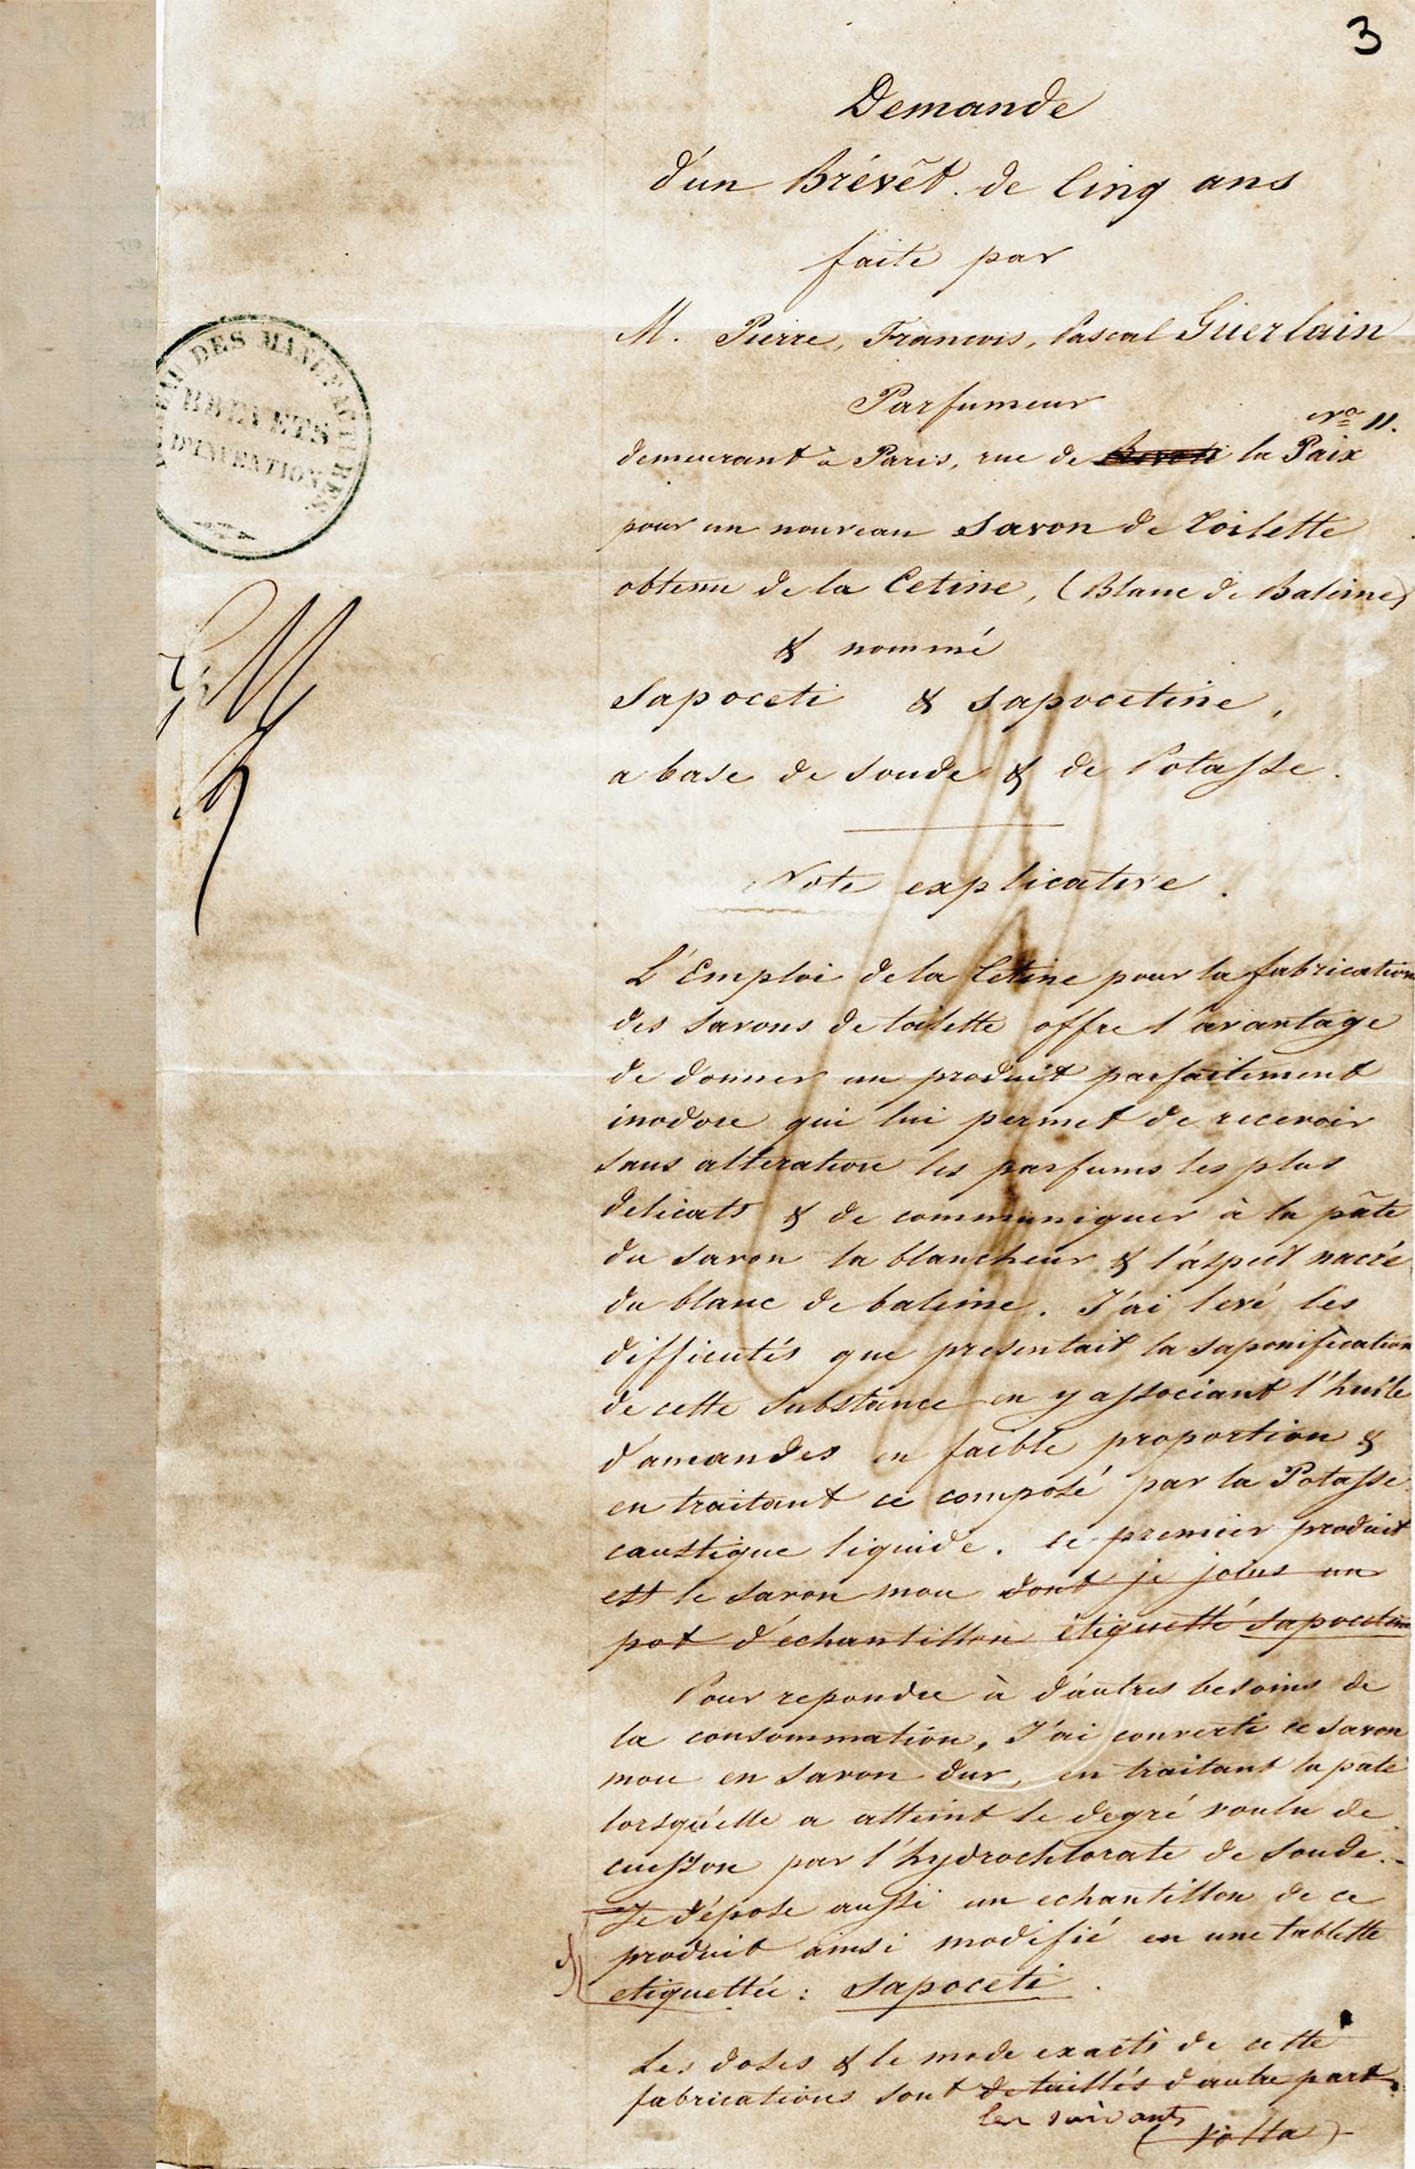 3
Demande
d'un Brévêt de Cinq ans
faite par
M. Pierre, François, Pascal Guerlain
Parfumeur
No 11.
demeurant à Paris, rue de la Paix
pour un nouveau Savon de Toilette
obtenu de la Cetine, (Blanc de Baleine)
& nommé
Sapoceti & Sapocetine,
a base de soude & de Potasse.
Note explicative.
L'Emploi de la Cetine pour la fabrication
des savons de toilette offre l'avantage
de donner un produit parfaitement
inodore qui lui permet de recevoir
sans alteration les parfums les plus
delicats & de communiquer à la pâte
du savon la blancheur & l'áspect nacré
du blanc de baleine. J'ai levé les
difficutés que presentait la saponification
de cette substance en y associant l'huile
d'amandes en faible proportion &
en traitant ce composé par la Potasse
caustique liquide. ce premier produit
est le savon mou dont je joins un
pot d'échantillon étiquetté Sapocetine
Pour repondre à d'áutres besoins de
la consommation, J'ai converti ce savon
mou en savon dur, en traitant la pate
lorsqu'elle a atteint le degré voulu de
cuisson par l'hydrochlorate de soude.
Je dépose aussi un echantillon de ce
produit ainsi modifié en une tablette
etiquettée : Sapoceti.
Les doses & le mode exacts de cette
fabrications sont detaillés d'autre part.
les suivants
(Volta)
DES MANUFACTURES
BREVETS
D'INVENTION